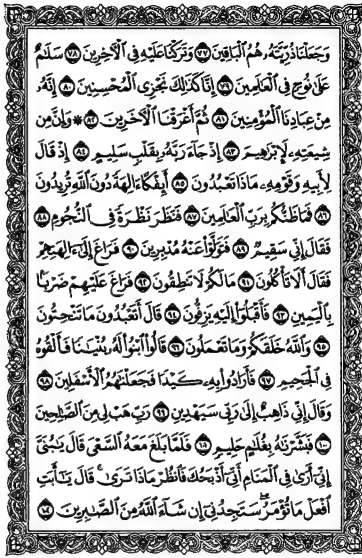 وَجَعَلْنَا ذُرِّيَّتَهُۥ هُمُ ٱلْبَاقِينَ ٧٧ وَتَرَكْنَا عَلَيْهِ فِى ٱلْـَٔاخِرِينَ ٧٨ سَلَٰمٌ
عَلَىٰ نُوحٍ فِى ٱلْعَٰلَمِينَ ٧٩ إِنَّا كَذَٰلِكَ نَجْزِى ٱلْمُحْسِنِينَ ٨٠ إِنَّهُۥ
مِنْ عِبَادِنَا ٱلْمُؤْمِنِينَ ٨١ ثُمَّ أَغْرَقْنَا ٱلْـَٔاخَرِينَ ٨٢ ۞ وَإِنَّ مِن
شِيعَتِهِۦ لَإِبْرَٰهِيمَ ٨٣ إِذْ جَآءَ رَبَّهُۥ بِقَلْبٍ سَلِيمٍ ٨٤ إِذْ قَالَ
لِأَبِيهِ وَقَوْمِهِۦ مَاذَا تَعْبُدُونَ ٨٥ أَئِفْكًا ءَالِهَةً دُونَ ٱللَّهِ تُرِيدُونَ
٨٦ فَمَا ظَنُّكُم بِرَبِّ ٱلْعَٰلَمِينَ ٨٧ فَنَظَرَ نَظْرَةً فِى ٱلنُّجُومِ ٨٨
فَقَالَ إِنِّى سَقِيمٌ ٨٩ فَتَوَلَّوْا۟ عَنْهُ مُدْبِرِينَ ٩٠ فَرَاغَ إِلَىٰٓ ءَالِهَتِهِمْ
فَقَالَ أَلَا تَأْكُلُونَ ٩١ مَا لَكُمْ لَا تَنطِقُونَ ٩٢ فَرَاغَ عَلَيْهِمْ ضَرْبًۢا
بِٱلْيَمِينِ ٩٣ فَأَقْبَلُوٓا۟ إِلَيْهِ يَزِفُّونَ ٩٤ قَالَ أَتَعْبُدُونَ مَا تَنْحِتُونَ
٩٥ وَٱللَّهُ خَلَقَكُمْ وَمَا تَعْمَلُونَ ٩٦ قَالُوا۟ ٱبْنُوا۟ لَهُۥ بُنْيَٰنًا فَأَلْقُوهُ
فِى ٱلْجَحِيمِ ٩٧ فَأَرَادُوا۟ بِهِۦ كَيْدًا فَجَعَلْنَٰهُمُ ٱلْأَسْفَلِينَ ٩٨
وَقَالَ إِنِّى ذَاهِبٌ إِلَىٰ رَبِّى سَيَهْدِينِ ٩٩ رَبِّ هَبْ لِى مِنَ ٱلصَّٰلِحِينَ
١٠٠ فَبَشَّرْنَٰهُ بِغُلَٰمٍ حَلِيمٍ ١٠١ فَلَمَّا بَلَغَ مَعَهُ ٱلسَّعْىَ قَالَ يَٰبُنَىَّ
إِنِّىٓ أَرَىٰ فِى ٱلْمَنَامِ أَنِّىٓ أَذْبَحُكَ فَٱنظُرْ مَاذَا تَرَىٰ ۚ قَالَ يَٰٓأَبَتِ
ٱفْعَلْ مَا تُؤْمَرُ ۖ سَتَجِدُنِىٓ إِن شَآءَ ٱللَّهُ مِنَ ٱلصَّٰبِرِينَ ١٠٢